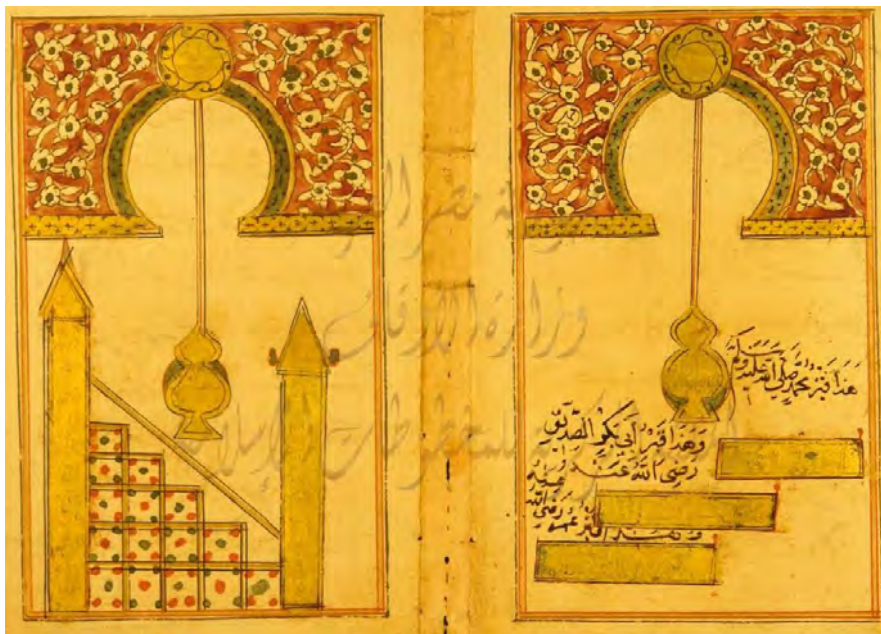 هَذَا قَبْرُ مُحَمَّدٍ صَلَّى اللَّهُ عَلَيْهِ وَسَلَّمَ
وَهَذَا قَبْرُ أَبِي بَكْرٍ الصِّدِّيقِ
رَضِيَ اللَّهُ عَنْهُ
وَهَذَا قَبْرُ عُمَرَ رَضِيَ اللَّهُ
عنه
وزارة الأوقاف